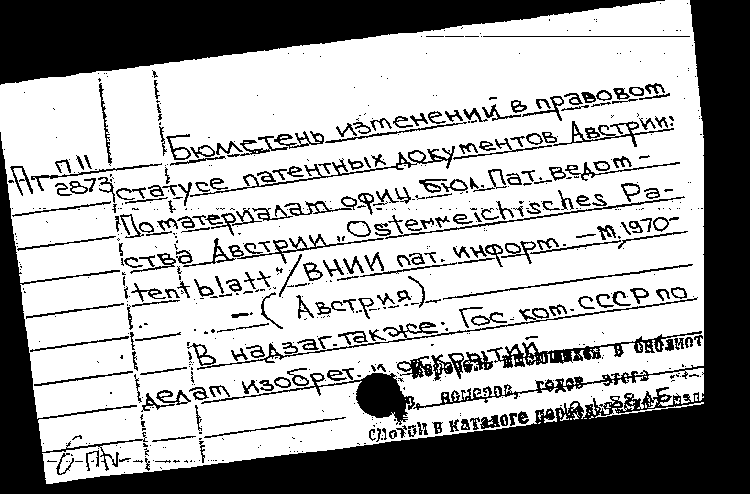 Бюллетень изменений в правовом
Пт П11
2873
статусе патентных документов Австрии:
По материалам офиц. бюл. Пат. ведом-
ства Австрии „Osterreichisches Pa-
tentblatt"/ ВНИИ пат. информ. — М, 1970-
— (Австрия)
В надзаг. также: Гос. ком. СССР по
делам изобрет. и открытий
имеющихся в библиот
номеров, годов этого
смотри в каталоге
б